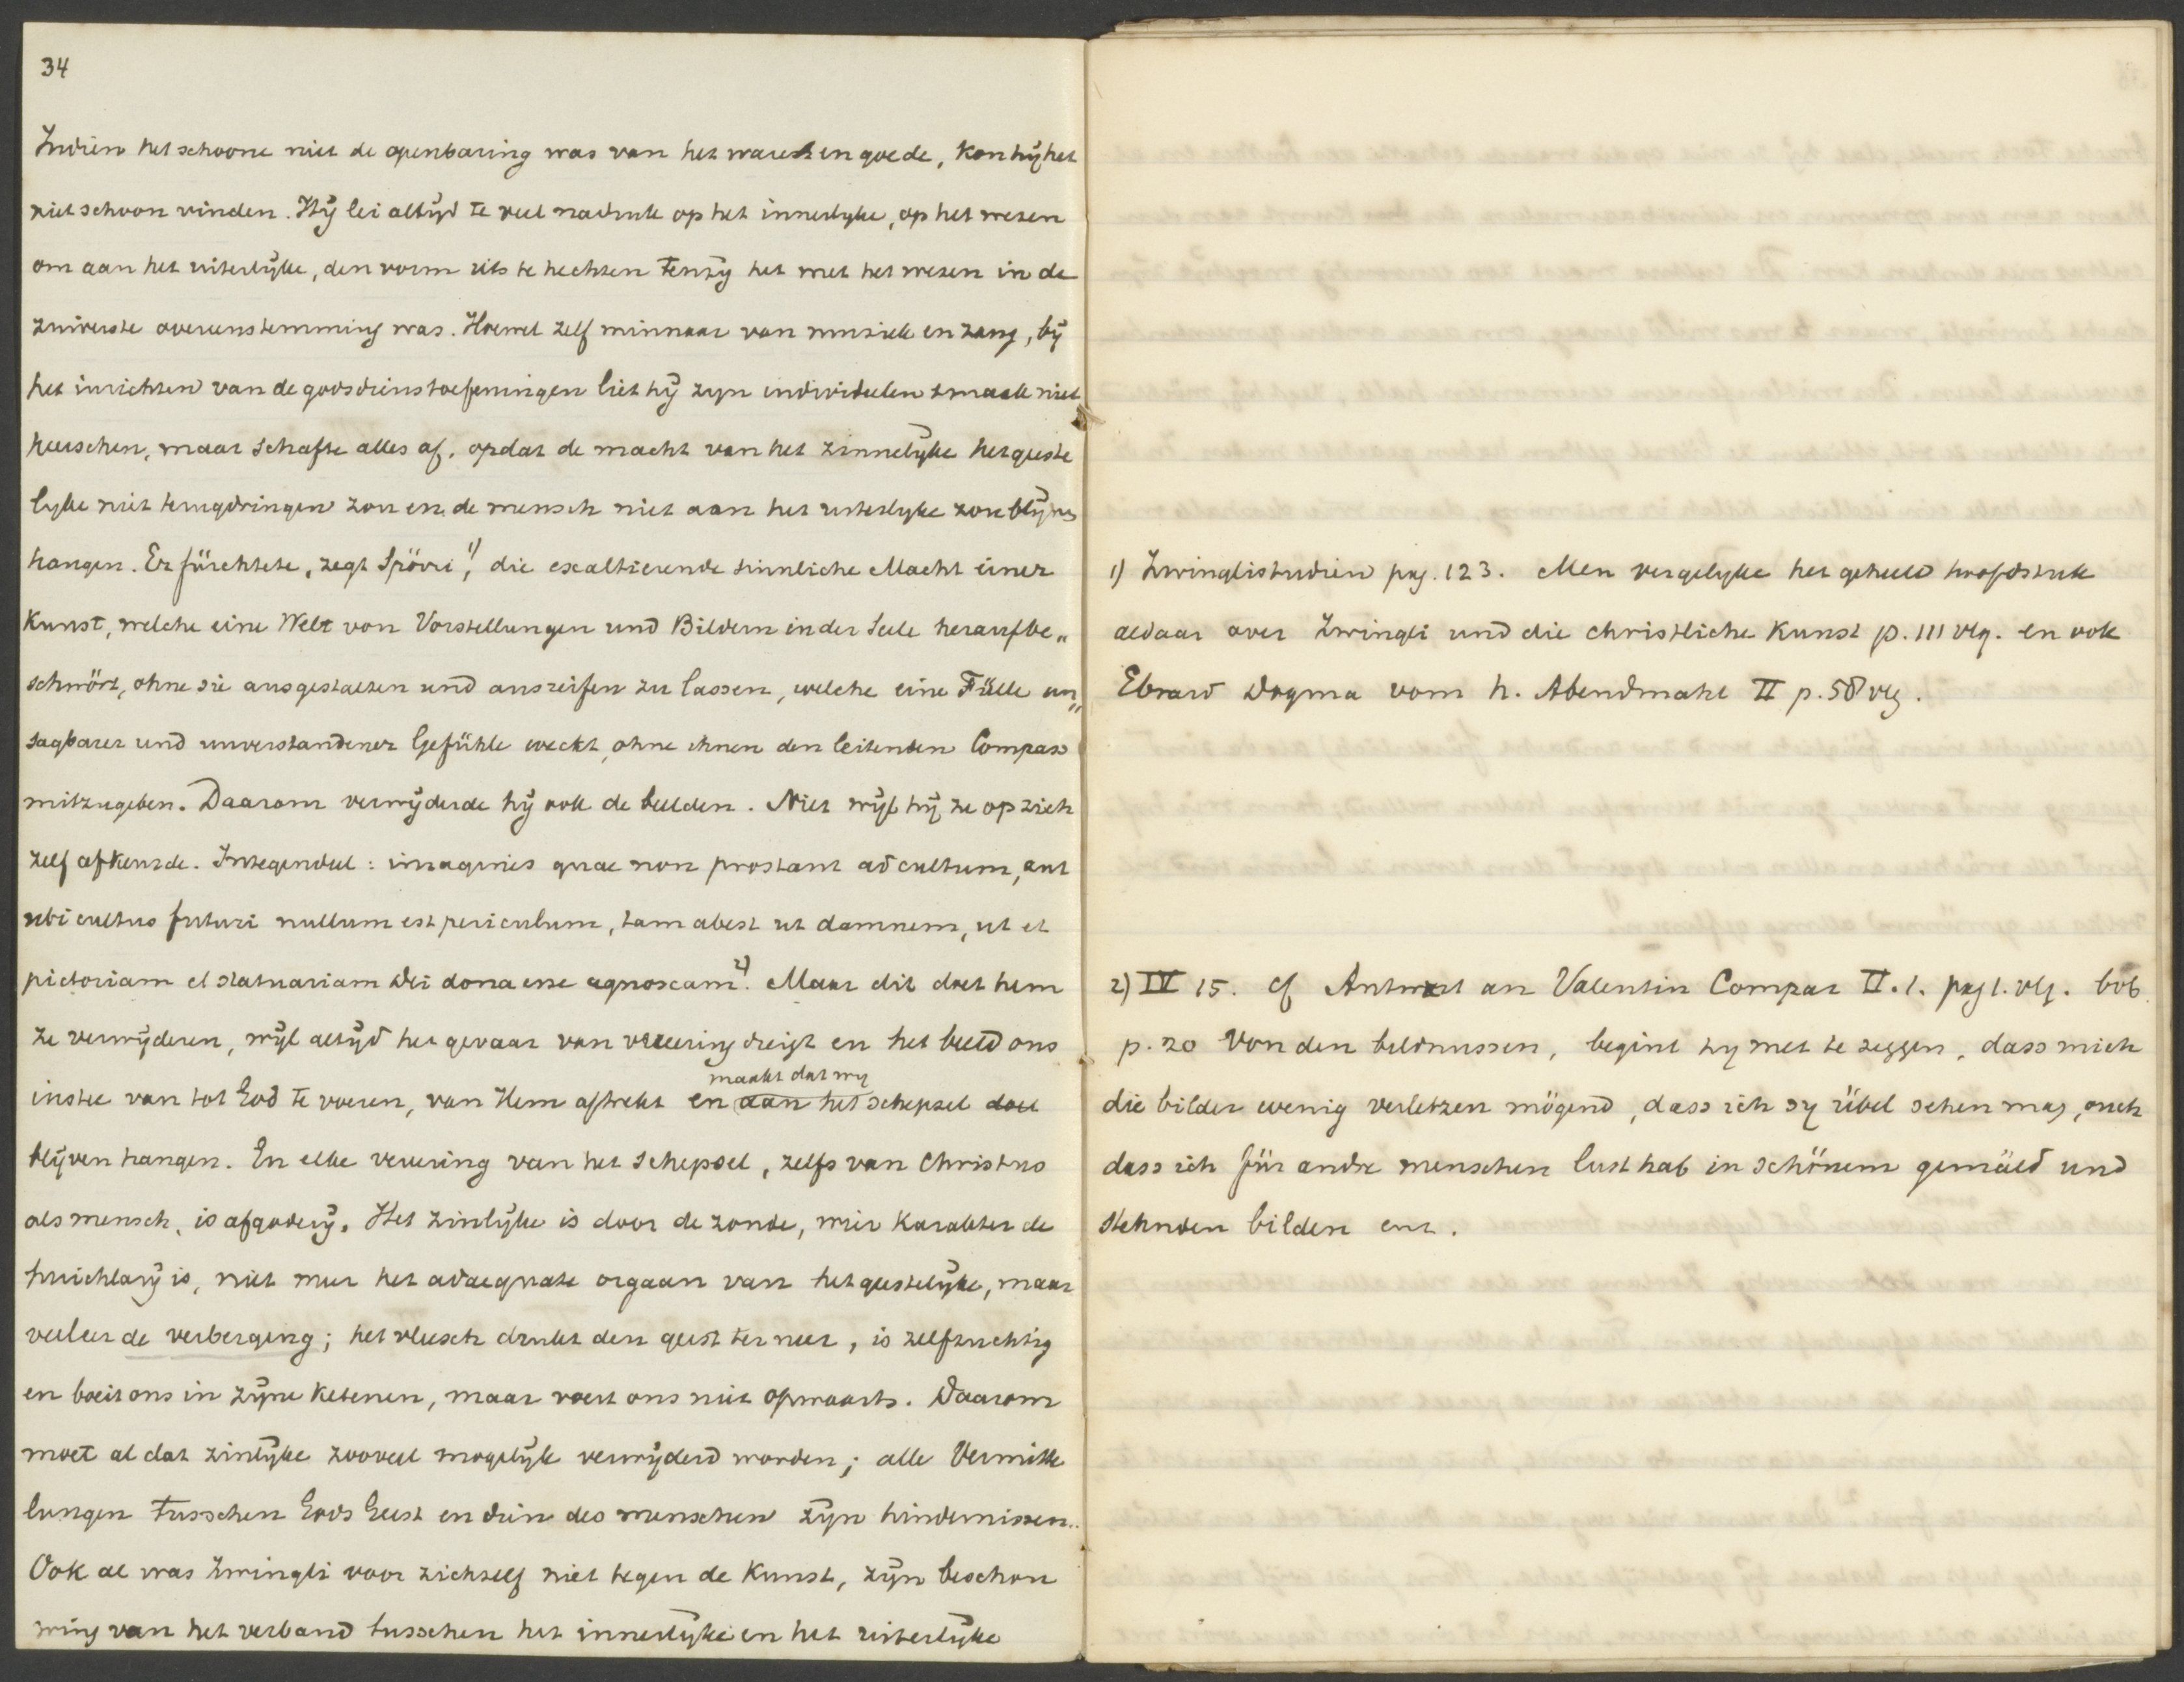 34
Indien het schoone niet de openbaring was van het ware en goede, kon hij het
niet schoon vinden. Hij lei altijd te veel nadruk op het innerlyke, op het wezen
om aan het uiterlijke, den vorm iets te hechten tenzij het met het wezen in de
zuiverste overeenstemming was. Hoewel zelf minnaar van muziek en zang, bij
het inrichten van de godsdienstoefeningen liet hij zyn individuelen smaak niet
heerschen, maar schafte alles af, opdat de macht van het zinnelijke het geeste
lyke niet terugdringen zou en de mensch niet aan het uiterlyke zou blijven
hangen. Er fürchtete, zegt Spöri 1), die exaltierende sinnliche Macht einer
Kunst, welche eine Welt von Vorstellungen und Bildern in der Seele heraufbe„
schwört, ohne sie ausgestalten und ausreifen zu lassen, welche eine Fülle un„
sagbarer und unverstandener Gefühle weckt, ohne ihnen den leitenden Compass
mitzugeben. Daarom verwijderde hij ook de beelden. Niet wijl hij ze op zich
zelf afkeurde. Integendeel: imagines quae non prostant ad cultum, aut
ubi cultus futuri nullum est periculum, tam abest ut damnem, ut et
pictoriam et statuariam Dei dona esse agnoscam 2). Maar dit doet hem
ze verwijderen, wijl altijd het gevaar van vereering dreigt en het beeld ons
maakt dat wy
instee van tot God te voeren, van Hem aftrekt en aan het schepsel doet
blijven hangen. En elke vereering van het schepsel, zelfs van Christus
als mensch, is afgoderij. Het zinlijke is door de zonde, wier karakter de
huichlarij is, niet meer het adaequate orgaan van het geestelijke, maar
veeleer de verberging; het vleesch drukt den geest ter neer, is zelfzuchtig
en boeit ons in zijne ketenen, maar voert ons niet opwaarts. Daarom
moet al dat zinlijke zooveel mogelijk verwijderd worden; alle Vermitte
lungen tusschen Gods Geest en dien des menschen zijn hindernissen.
Ook al was Zwingli voor zichzelf niet tegen de Kunst, zijn beschou
wing van het verband tusschen het innerlyke en het uiterlijke
1) Zwinglistudien pag. 123. Men vergelyke het geheele hoofdstuk
aldaar over Zwingli und die christliche Kunst p. 111 vlg. en ook
Ebrard Dogma vom h. Abendmahl II p. 58 vlg.
2) IV 15. cf Antwort an Valentin Compar II.1. pag 1. vlg. bvb
p. 20 Von den bildnussen, begint hy met te zeggen, dass mich
die bilder wenig verletzen mögend, dass ich sy übel sehen mag, ouch
dass ich für andre menschen lust hab in schönem gemäld und
stehnden bilden enz.